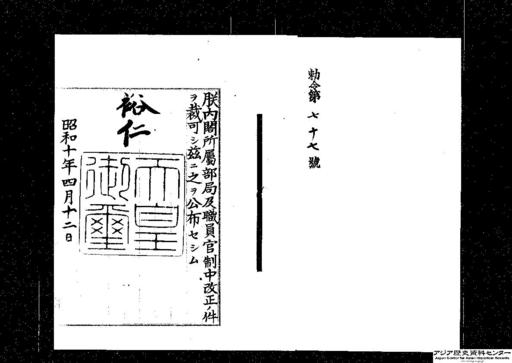 勅令第七十七號
朕內閣所屬部局及職員官制中改正ノ件
ヲ裁可シ茲ニ之ヲ公布セシム
裕仁
天皇
御璽
昭和十年四月十二日
アジア歴史資料センター
Japan Center for Asian Historical Records